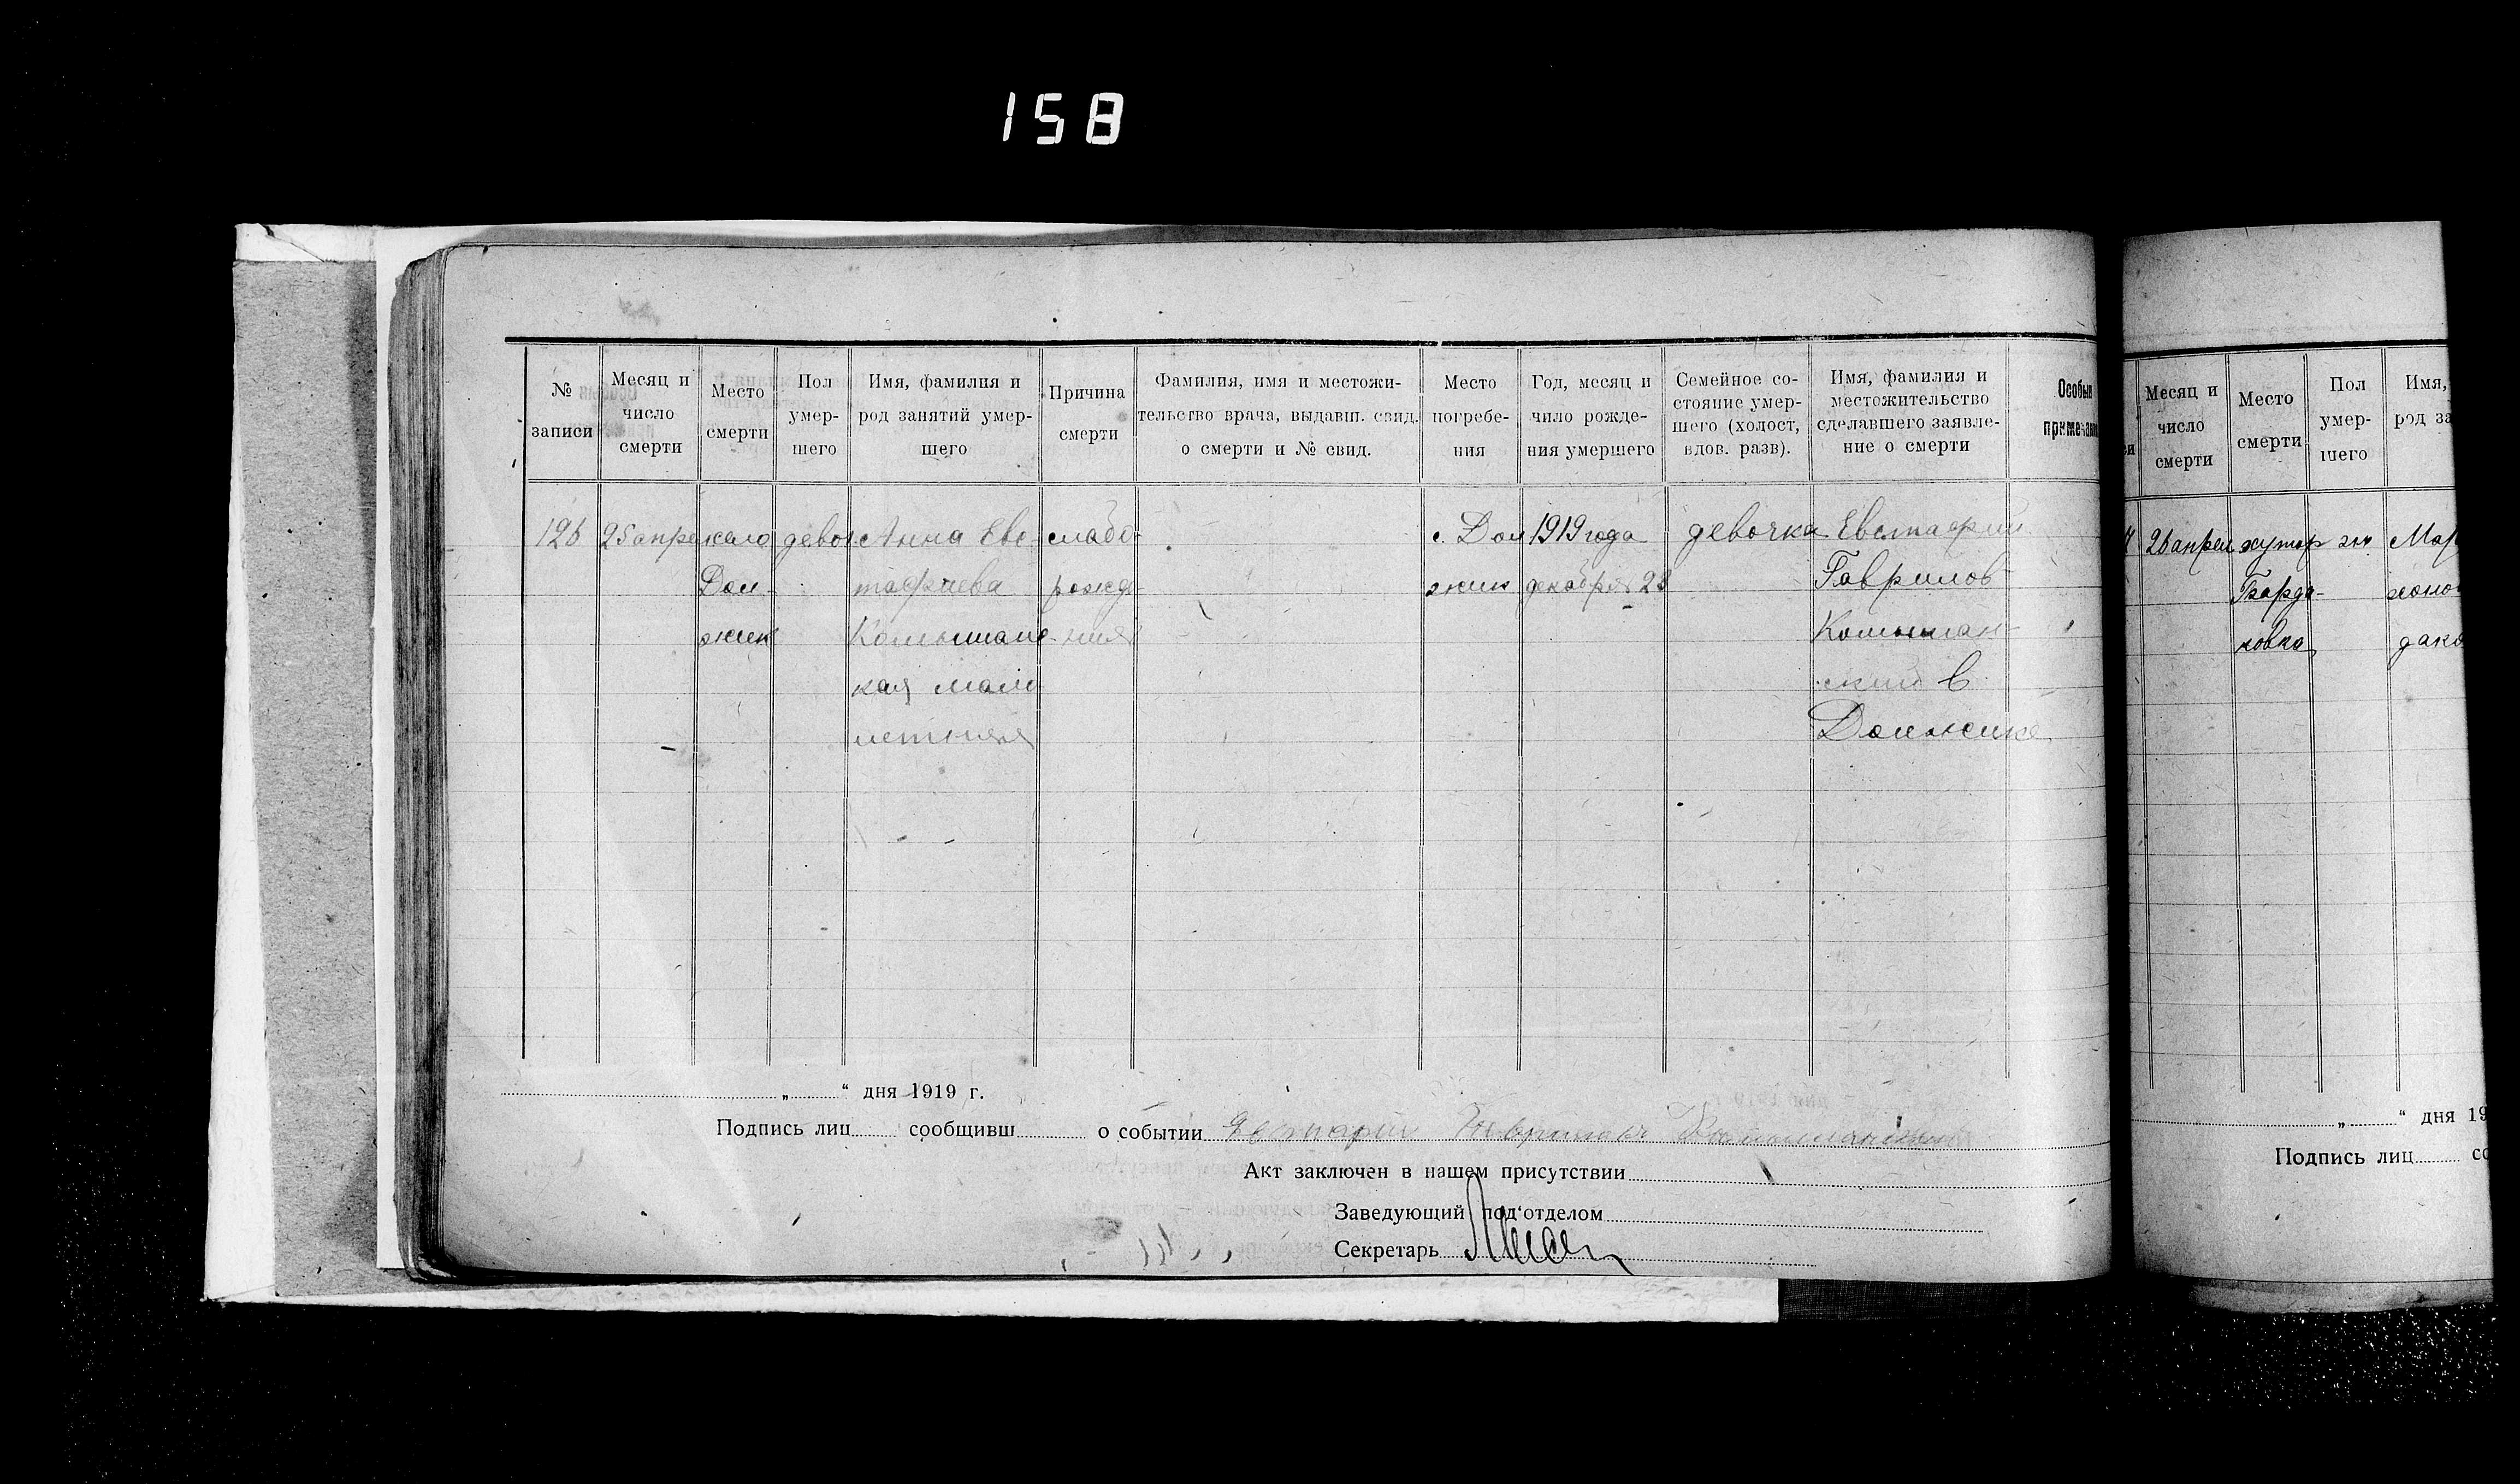 158
№ записи
Месяц и число смерти
Место смерти
Пол умер-
шего
Имя, фамилия и
род занятий умер-
шего
Причина смерти
Фамилия, имя и местожи-
тельство врача, выдавш. свид.
о смерти и № свид.
Место
погребе-
ния
Год, месяц и
чило рожде-
ния умершего
Семейное со-
стояние умер-
шего (холост,
вдов. разв).
Имя, фамилия и
местожительство
сделавшего заявле-
ние о смерти
Особыя
примечани
126
25 апре
село
Дол-
жик
девоч
Анна Евс-
тафиева
Камышанс-
кая мало
летняя
слабо-
рожде-
ния
с. Дол
жик
1919 года
декабря 28
девочка
Евстафий
Гаврилов
Камышан-
ский в
Должике
“ дня 1919 г.
Подпись лиц сообщивш о событии Евстафий Гаврилов Камышанский
Акт заключен в нашем присутствии
Заведующий под‘отделом
Секретарь
Месяц и
число
смерти
Место
смерти
Пол
умер-
шего
Имя,
род за
26 апрел
хутор
Гварда-
ковка
Мар
дако
“ дня 19
Подпись лиц со